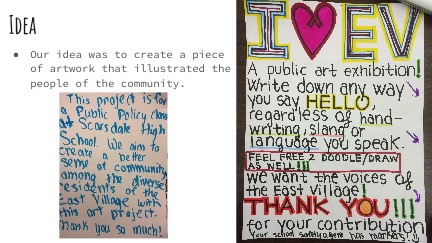 Idea
● Our idea was to create a piece
of artwork that illustrated the
people of the community.
This project is for
a Public Policy class
at Scarsdale High
School. We aim to
create a better
sense of community
among the diverse
residents of the
East Village with
this art project.
Thank you so much!
I ♥ EV
A public art exhibition!
Write down any way
you say HELLO,
regardless of hand-
writing, slang or
language you speak.
FEEL FREE 2 DOODLE/DRAW
AS WELL!!!
We want the voices of
the East Village!
THANK YOU!!!
for your contribution
Your school safety agent has markers!!